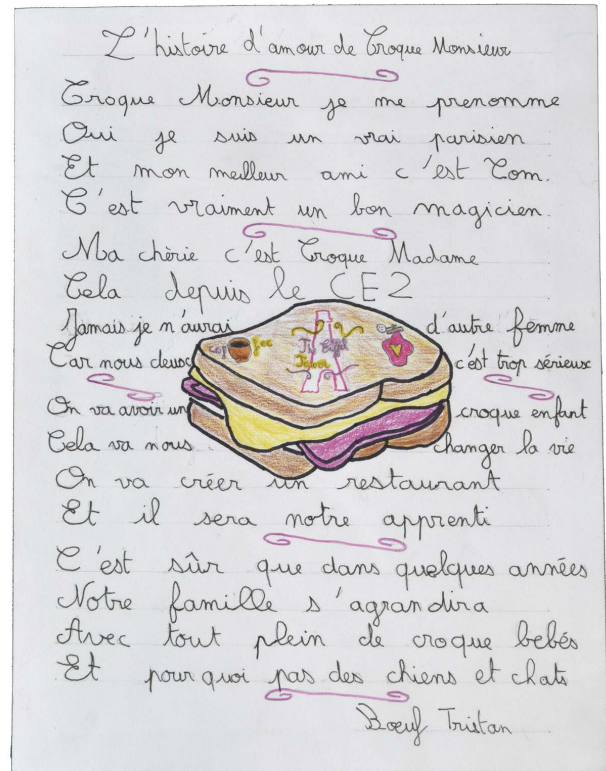 L'histoire d'amour de Croque Monsieur
Croque Monsieur je me prenomme
Oui je suis un vrai parisien
Et mon meilleur ami c'est Tom.
C'est vraiment un bon magicien.
Ma chèrie c'est Croque Madame
Cela depuis le CE2
Jamais je n'aurai d'autre femme
Car nous deux c'est trop sérieux
On va avoir un croque enfant
Cela va nous changer la vie
On va créer un restaurant
Et il sera notre apprenti
C'est sûr que dans quelques années
Notre famille s'agrandira
Avec tout plein de croque bebés
Et pourquoi pas des chiens et chats
Boeuf Tristan